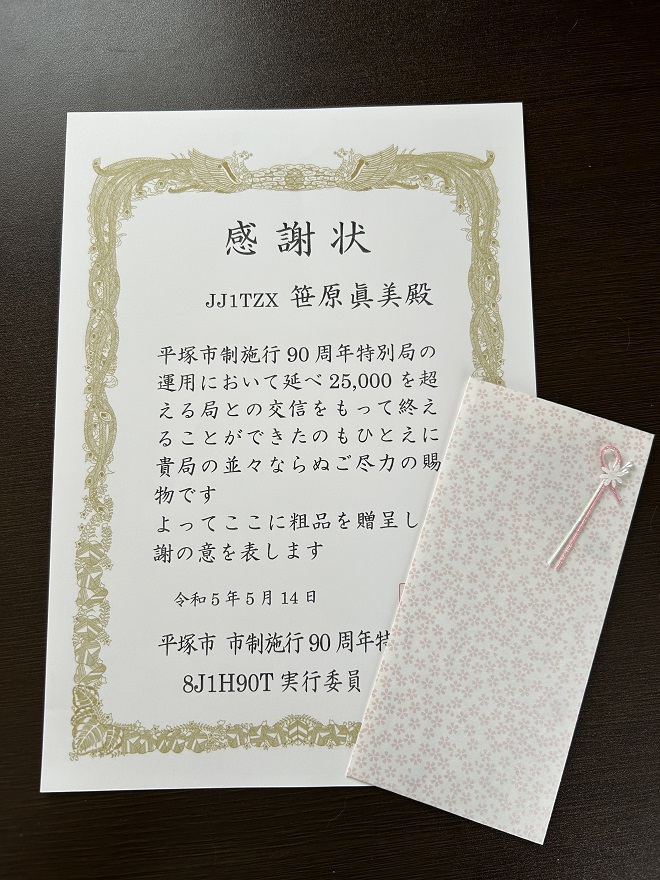 感謝状
JJ1TZX 笹原眞美殿
平塚市制施行90周年特別局の
運用において延べ25,000を超
える局との交信をもって終え
ることができたのもひとえに
貴局の並々ならぬご尽力の賜
物です
よってここに粗品を贈呈し
謝の意を表します
令和5年5月14日
平塚市 市制施行90周年特
8J1H90T実行委員